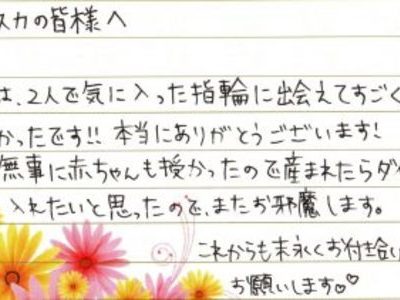 スカの皆様へ
は、2人で気に入った指輪に出会えてすごく
かったです!! 本当にありがとうございます!
無事に赤ちゃんも授かったので産まれたらダイ
入れたいと思ったので、またお邪魔します。
これからも末永くお付き合い
お願いします♡♡